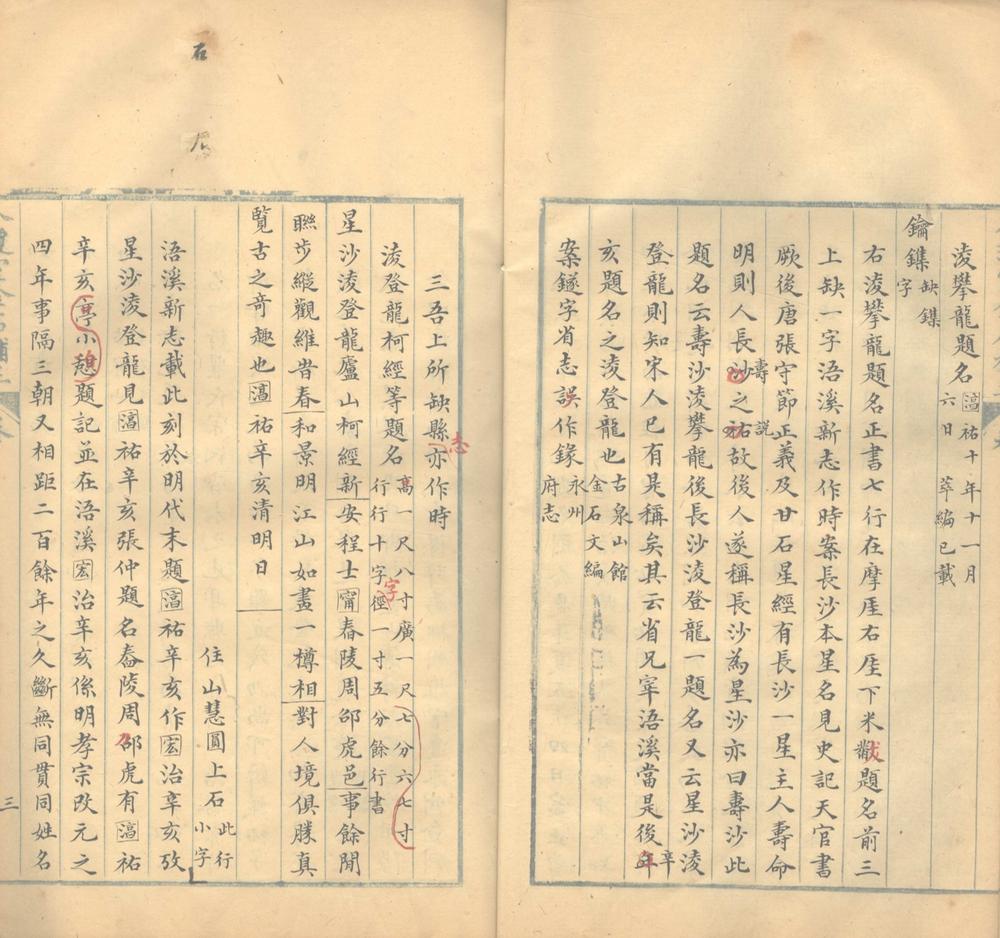 淩攀龍題名
湻祐十年十一月
六日 萃編已載
鑰鏶
缺鏶
字
右淩攀龍題名正書七行在摩厓右厓下米黻題名前三
上缺一字浯溪新志作時案長沙本星名見史記天官書
厥後唐張守節正義及甘石星經有長沙一星主人壽命
明則人長壽之説故後人遂稱長沙為星沙亦曰壽沙此
題名云壽沙淩攀龍後長沙淩登龍一題名又云星沙淩
登龍則知宋人已有是稱矣其云省兄宰浯溪當是後辛
亥題名之淩登龍也
古泉山館
金石文編
案鐩字省志誤作鎵
永州
府志
石
三吾上所缺縣志亦作時
淩登龍柯經等題名
高一尺八寸廣一尺七分六七寸
行行十字字徑一寸五分餘行書
星沙淩登龍廬山柯經新安程士甯舂陵周邵虎邑事餘閒
聯步縱觀維昔春和景明江山如畫一樽相對人境俱勝真
覽古之奇趣也湻祐辛亥清明日
住山慧圓上石
此行
小字
浯溪新志載此刻於明代末題湻祐辛亥作宏治辛亥攷
星沙淩登龍見湻祐辛亥張仲題名舂陵周邵虎有湻祐
辛亥亭小憩題記並在浯溪宏治辛亥係明孝宗改元之
四年事隔三朝又相距二百餘年之久斷無同貫同姓名
三